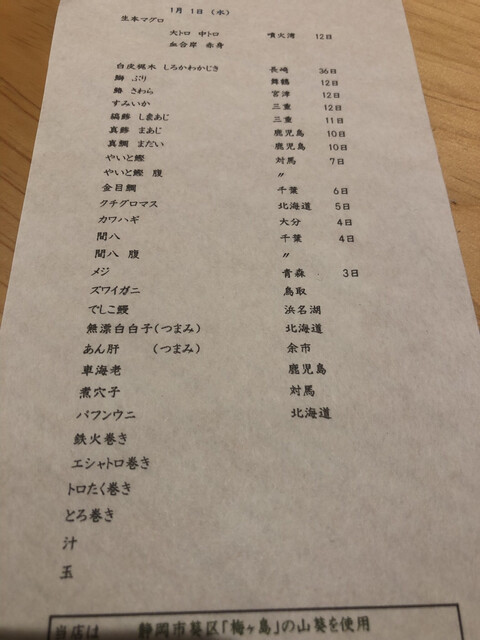 1月 1日 (水)
生本マグロ
大トロ 中トロ 噴火湾 12日
血合岸 赤身
白皮梶木 しろかわかじき 長崎 36日
鰤 ぶり 舞鶴 12日
鰆 さわら 宮津 12日
すみいか 三重 12日
縞鯵 しまあじ 三重 11日
真鯵 まあじ 鹿児島 10日
真鯛 まだい 鹿児島 10日
やいと鰹 対馬 7日
やいと鰹 腹 〃
金目鯛 千葉 6日
クチグロマス 北海道 5日
カワハギ 大分 4日
間八 千葉 4日
間八 腹 〃
メジ 青森 3日
ズワイガニ 鳥取
でしこ鰻 浜名湖
無漂白白子(つまみ) 北海道
あん肝 (つまみ) 余市
車海老 鹿児島
煮穴子 対馬
バフンウニ 北海道
鉄火巻き
エシャトロ巻き
トロたく巻き
とろ巻き
汁
玉
当店は 静岡市葵区「梅ヶ島」の山葵を使用